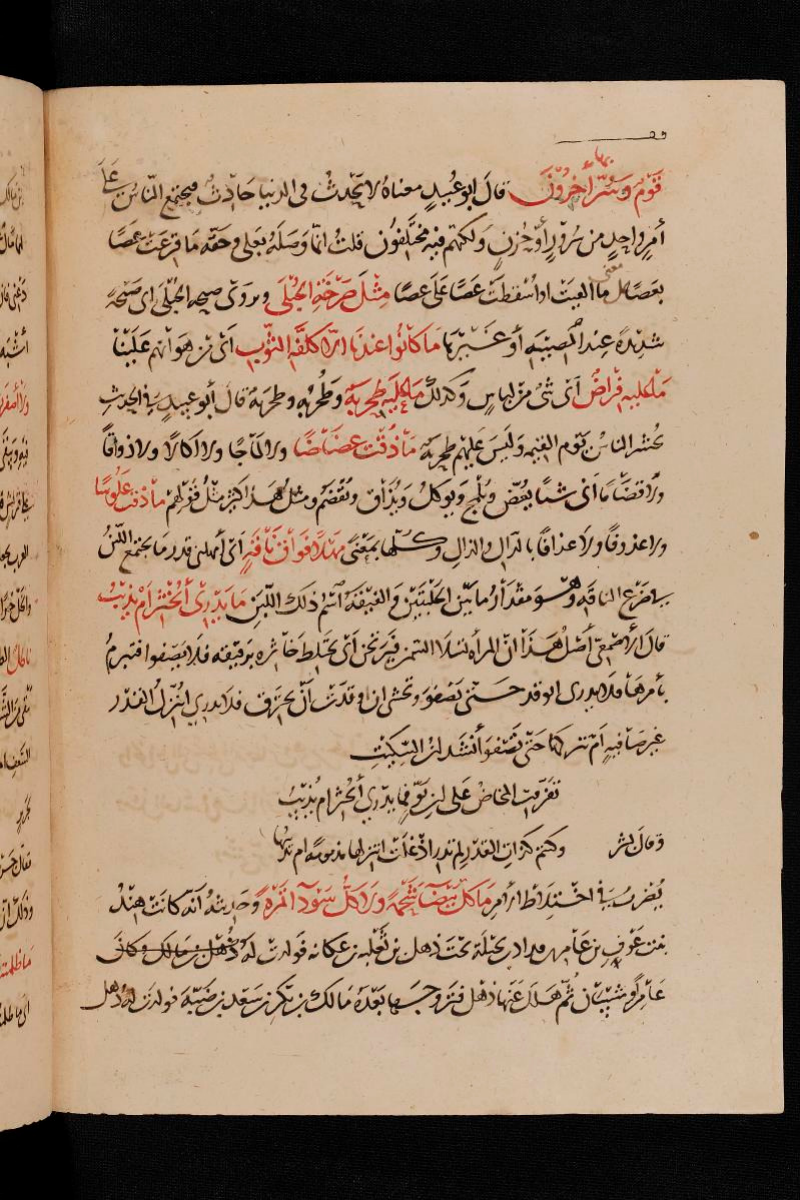 قوم وسُرَّ بها آخرون قال ابو عبيد معناه لا يحدث في الدنيا حادث فيجتمع الناس على
أمر واحد من سرور أو حزن ولكنهم فيه مختلفون قلت انما وصله بعلى وحقه ما قرعت عصًا
بعصًا على معنى ما القيت او اسقطت عصًا على عصا مثل صرخة الحبلى ويروى صيحة الحبلى اى صيحة
شديدة عند المصيبة أو غيرها ما كانوا عندنا الا كلفّة الثوب أى من هوانهم علينا
ما عليه فراض أى شئ من لباس وكذلك ما عليه طحربة وطحربه وطحربة قال أبو عبيد في الحديث
يحشر الناس يوم القيمه وليس عليهم طحربة ما ذقت عضاضًا ولا لماجًا ولا اكالا ولا ذواقًا
ولا قضامًا اى شيئا يعض ويلمج ويوكل ويذاق ويقضم ومثل هذا كثير مثل قولهم ما ذقت علوسًا
ولا عذوفًا ولا عدافًا بالدال والذال وكلها بمعنى مهلا فواق ناقة أى أمهلنى قدر ما يجتمع اللبن
في ضرع الناقه وهو مقدار ما بين الحلبتين والفيقة اسم ذلك اللبن ما يدرى أيخثر أم يذيب
قال الأصمعى أصل هذا انّ المرأه تسلأ السمن فيرتجن أى يختلط خاثره برقيقه فلا يصفوا فتبرم
بأمرها فلا تدرى اتوقد حتى يصفو وتخشى ان اوقدت أن يحترق فلا تدري اتنزل القدر
غير صافية ام تتركها حتى تصفو أنشد ابن السكيت
تفرقت المخاض على ابن بوّ فما يدري أيخثر أم يذيب
وقال بشر وكنتم كذات القدر لم تدر اذ غلت اتنزلها مذمومة ام تذيبها
يضرب في اختلاط الأمر ما كل بيضاء شحمة ولا كل سوداء تمرة وحديثه أنه كانت هند
بنت عوف بن عامر تحت ذهل بن ثعلبه بن عكابه فولدت له ذهل بن مالك وكان
عامرًا وشيبان ثم هلك عنها ذهل فتزوجها بعده مالك بن بكر بن سعد بن ضبة فولدت له ذهل